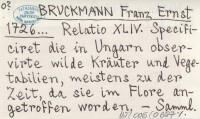 BRUCKMANN Franz Ernst
1726... Relatio XLIV. Specifi-
ciret die in Ungarn obser-
virte wilde Kräuter und Vege-
tabilien, meistens zu der
Zeit, da sie im Flore an-
getroffen worden, – Samml.